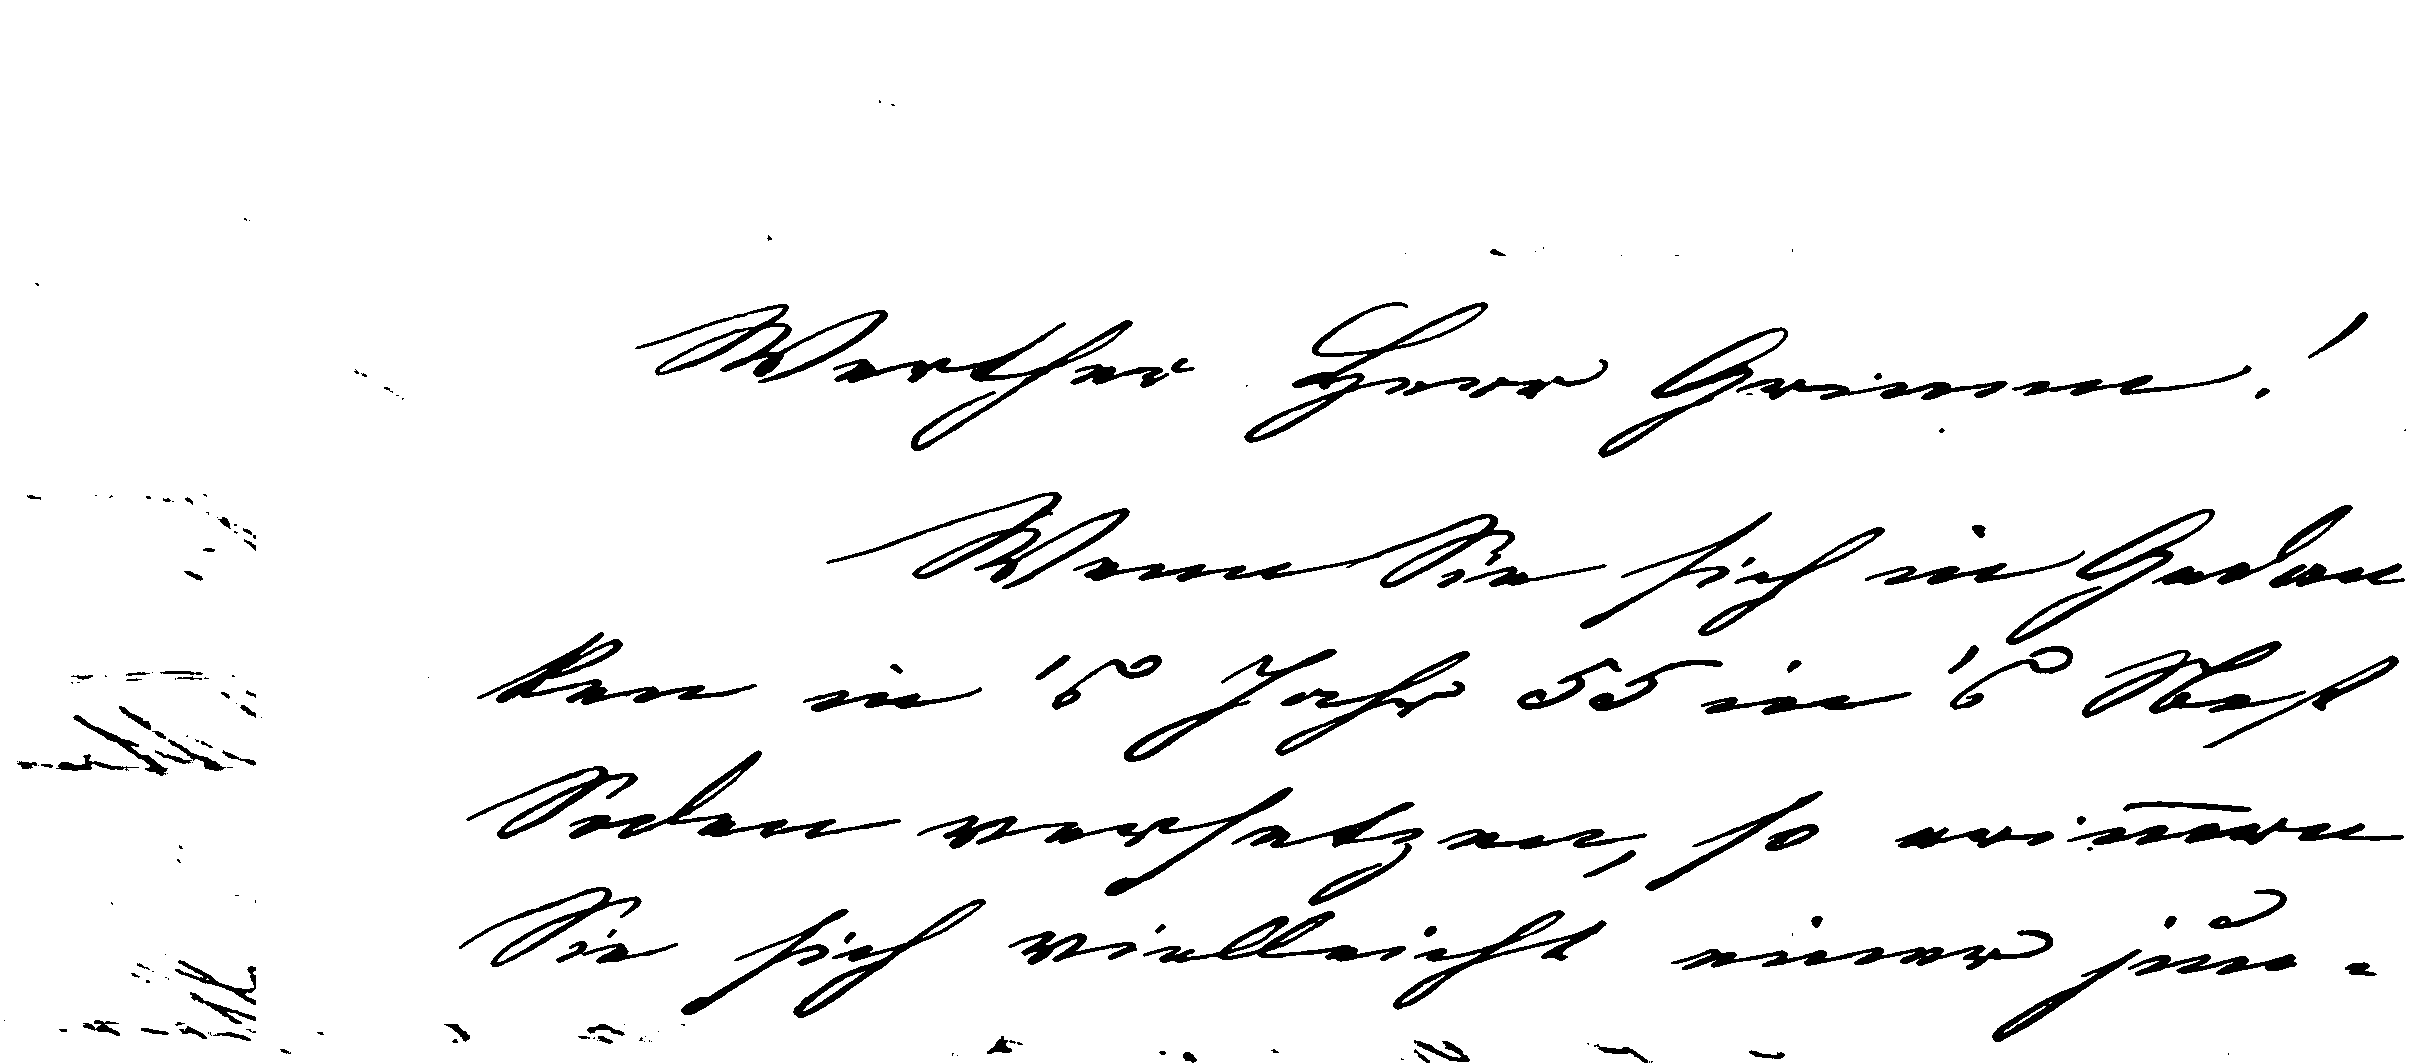 Werther Herr Grimm!
Wenn Sie sich in Gedan
ken in's Jahr 55 in's Bad
Soden versetzen, so erin̄ern
Sie sich vielleicht einer jun-